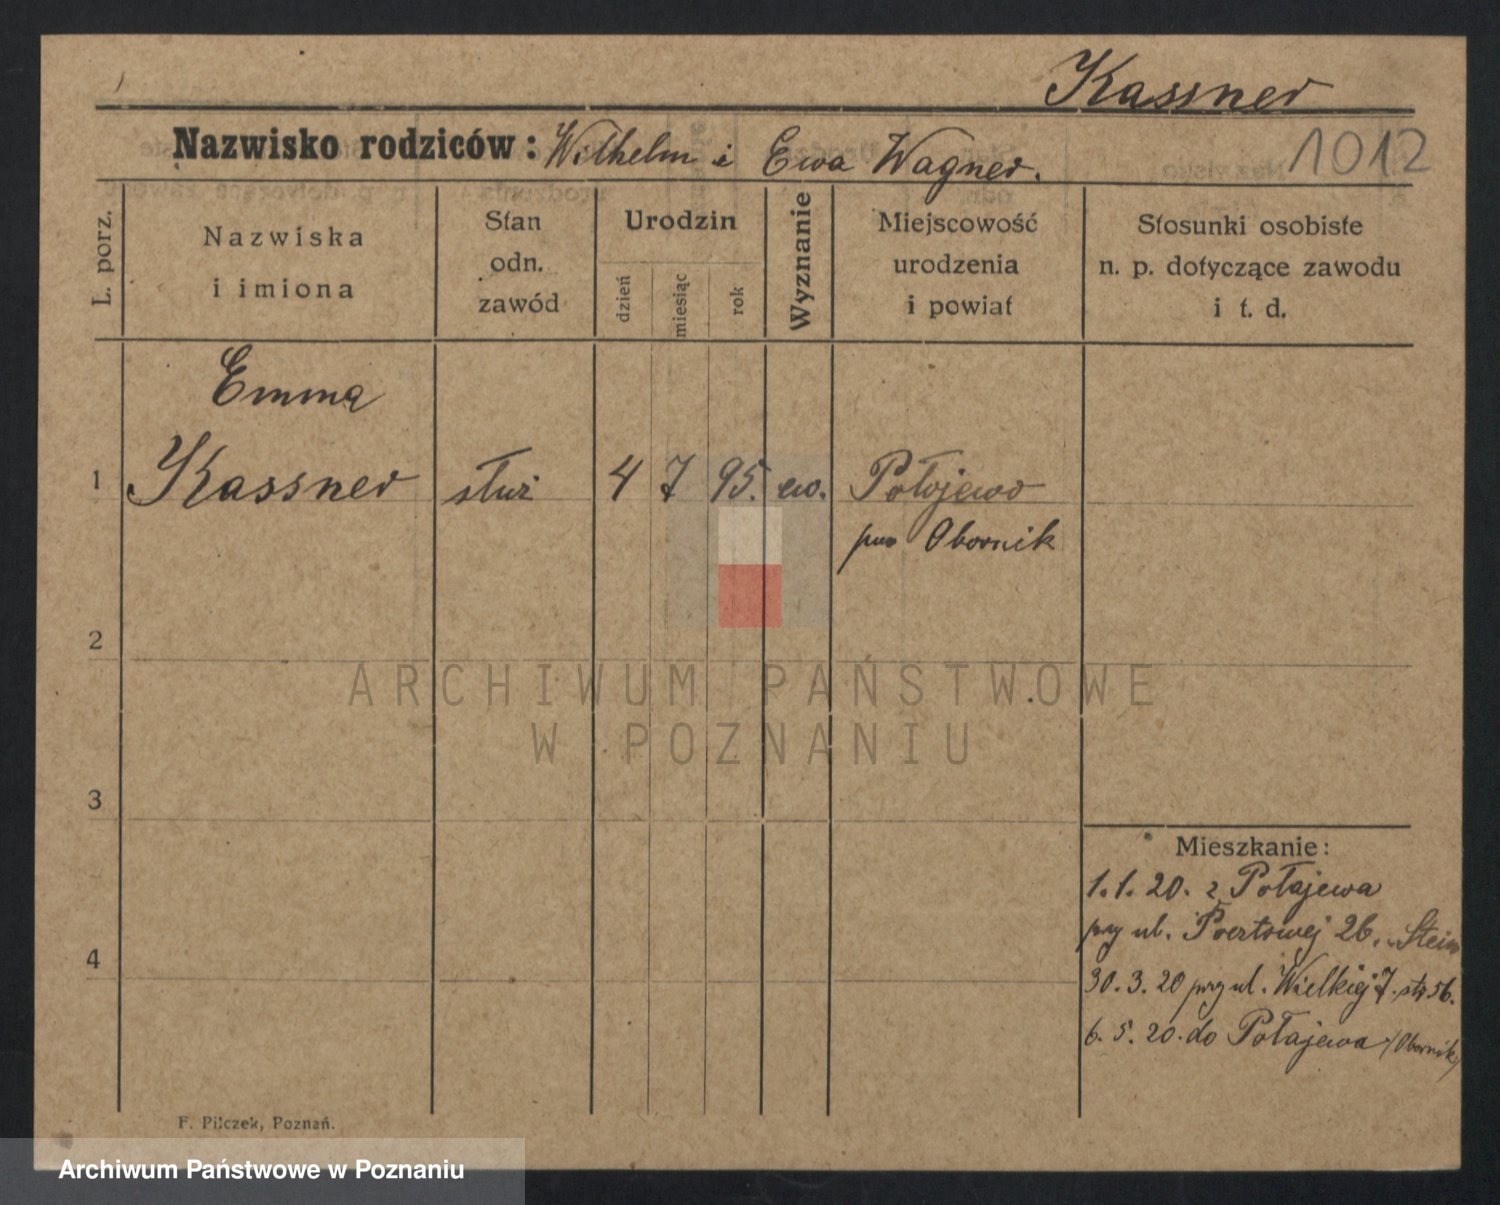 Kassner
Nazwisko rodziców: Wilhelm i Ewa Wagner.
1012
L. porz.
Nazwiska
i imiona
Stan
odn.
zawód
Urodzin
dzień
miesiąc
rok
Wyznanie
Miejscowość
urodzenia
i powiat
Stosunki osobiste
n. p. dotyczące zawodu
i t. d.
Emma
1 Kassner służ 4 7 95. ew. Połojewo
pow Obornik
2
ARCHIWUM PAŃSTWOWE
W POZNANIU
3
Mieszkanie:
1.1.20. z Połajewa
przy ul. 26. Stein
4
30.3.20 przy ul. Wielkiej 7.
6.5.20. do Połajewa (Obornik)
F. Pilczek, Poznań.
Archiwum Państwowe w Poznaniu